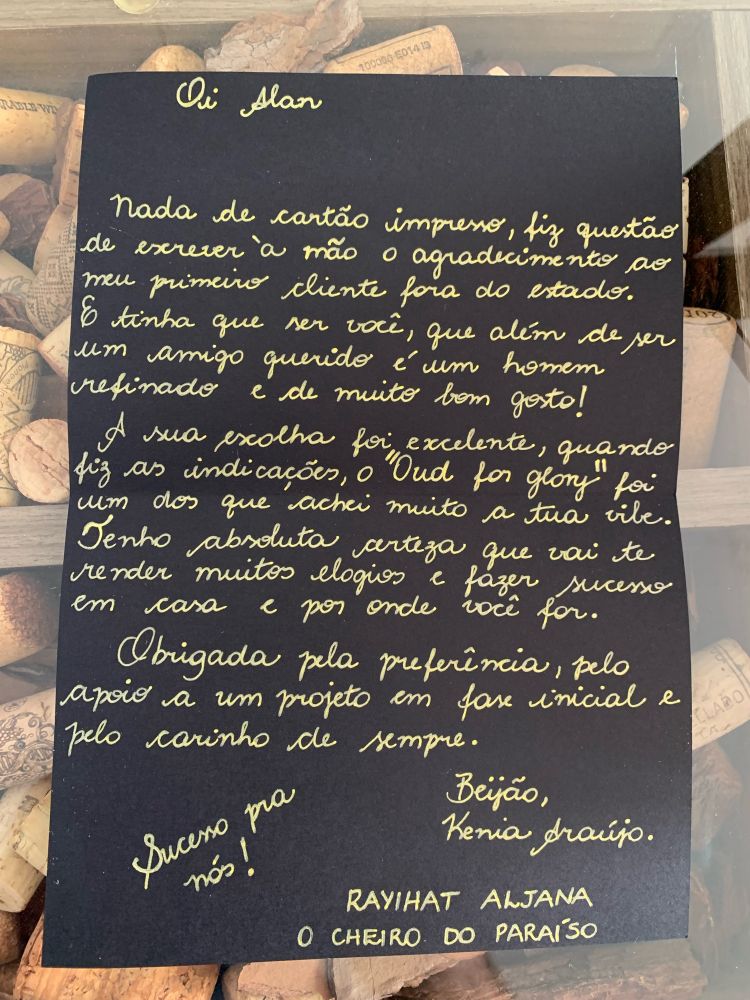 Oi Alan
Nada de cartão impresso, fiz questão
de escrever à mão o agradecimento ao
meu primeiro cliente fora do estado.
E tinha que ser você, que além de ser
um amigo querido é um homem
refinado e de muito bom gosto!
A sua escolha foi excelente, quando
fiz as indicações, o "Oud for glory" foi
um dos que achei muito a tua vibe.
Tenho absoluta certeza que vai te
render muitos elogios e fazer sucesso
em casa e por onde você for.
Obrigada pela preferência, pelo
apoio a um projeto em fase inicial e
pelo carinho de sempre.
Beijão,
Kenia Araújo.
Sucesso pra
nós!
RAYIHAT ALJANA
O CHEIRO DO PARAÍSO